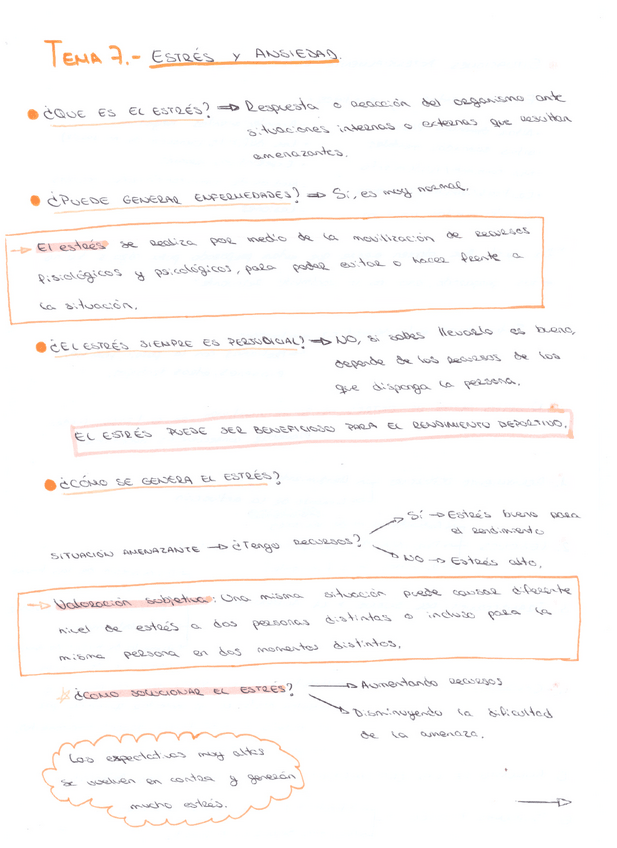 TEMA 7.- ESTRÉS Y ANSIEDAD.
¿QUE ES EL ESTRÉS? ⇒ Respuesta o reacción del organismo ante
situaciones internas o externas que resultan
amenazantes.
¿PUEDE GENERAR ENFERMEDADES? ⇒ Sí, es muy normal.
→ El estrés se realiza por medio de la movilización de recursos
fisiológicos y psicológicos, para poder evitar o hacer frente a
la situación.
¿EL ESTRÉS SIEMPRE ES PERJUDICIAL? ⇒ NO, si sabes llevarlo es bueno,
depende de los recursos de los
que disponga la persona.
EL ESTRÉS PUEDE SER BENEFICIOSO PARA EL RENDIMIENTO DEPORTIVO.
¿CÓMO SE GENERA EL ESTRÉS?
Sí → Estrés bueno para
el rendimiento
SITUACIÓN AMENAZANTE → ¿Tengo RECURSOS?
NO → Estrés alto.
→ Valoración subjetiva: Una misma situación puede causar diferente
nivel de estrés a dos personas distintas o incluso para la
misma persona en dos momentos distintos.
☆ ¿COMO SOLUCIONAR EL ESTRÉS? → Aumentando recursos
→ Disminuyendo la dificultad
de la amenaza.
Las expectativas muy altas
se vuelven en contra y generan
mucho estrés.